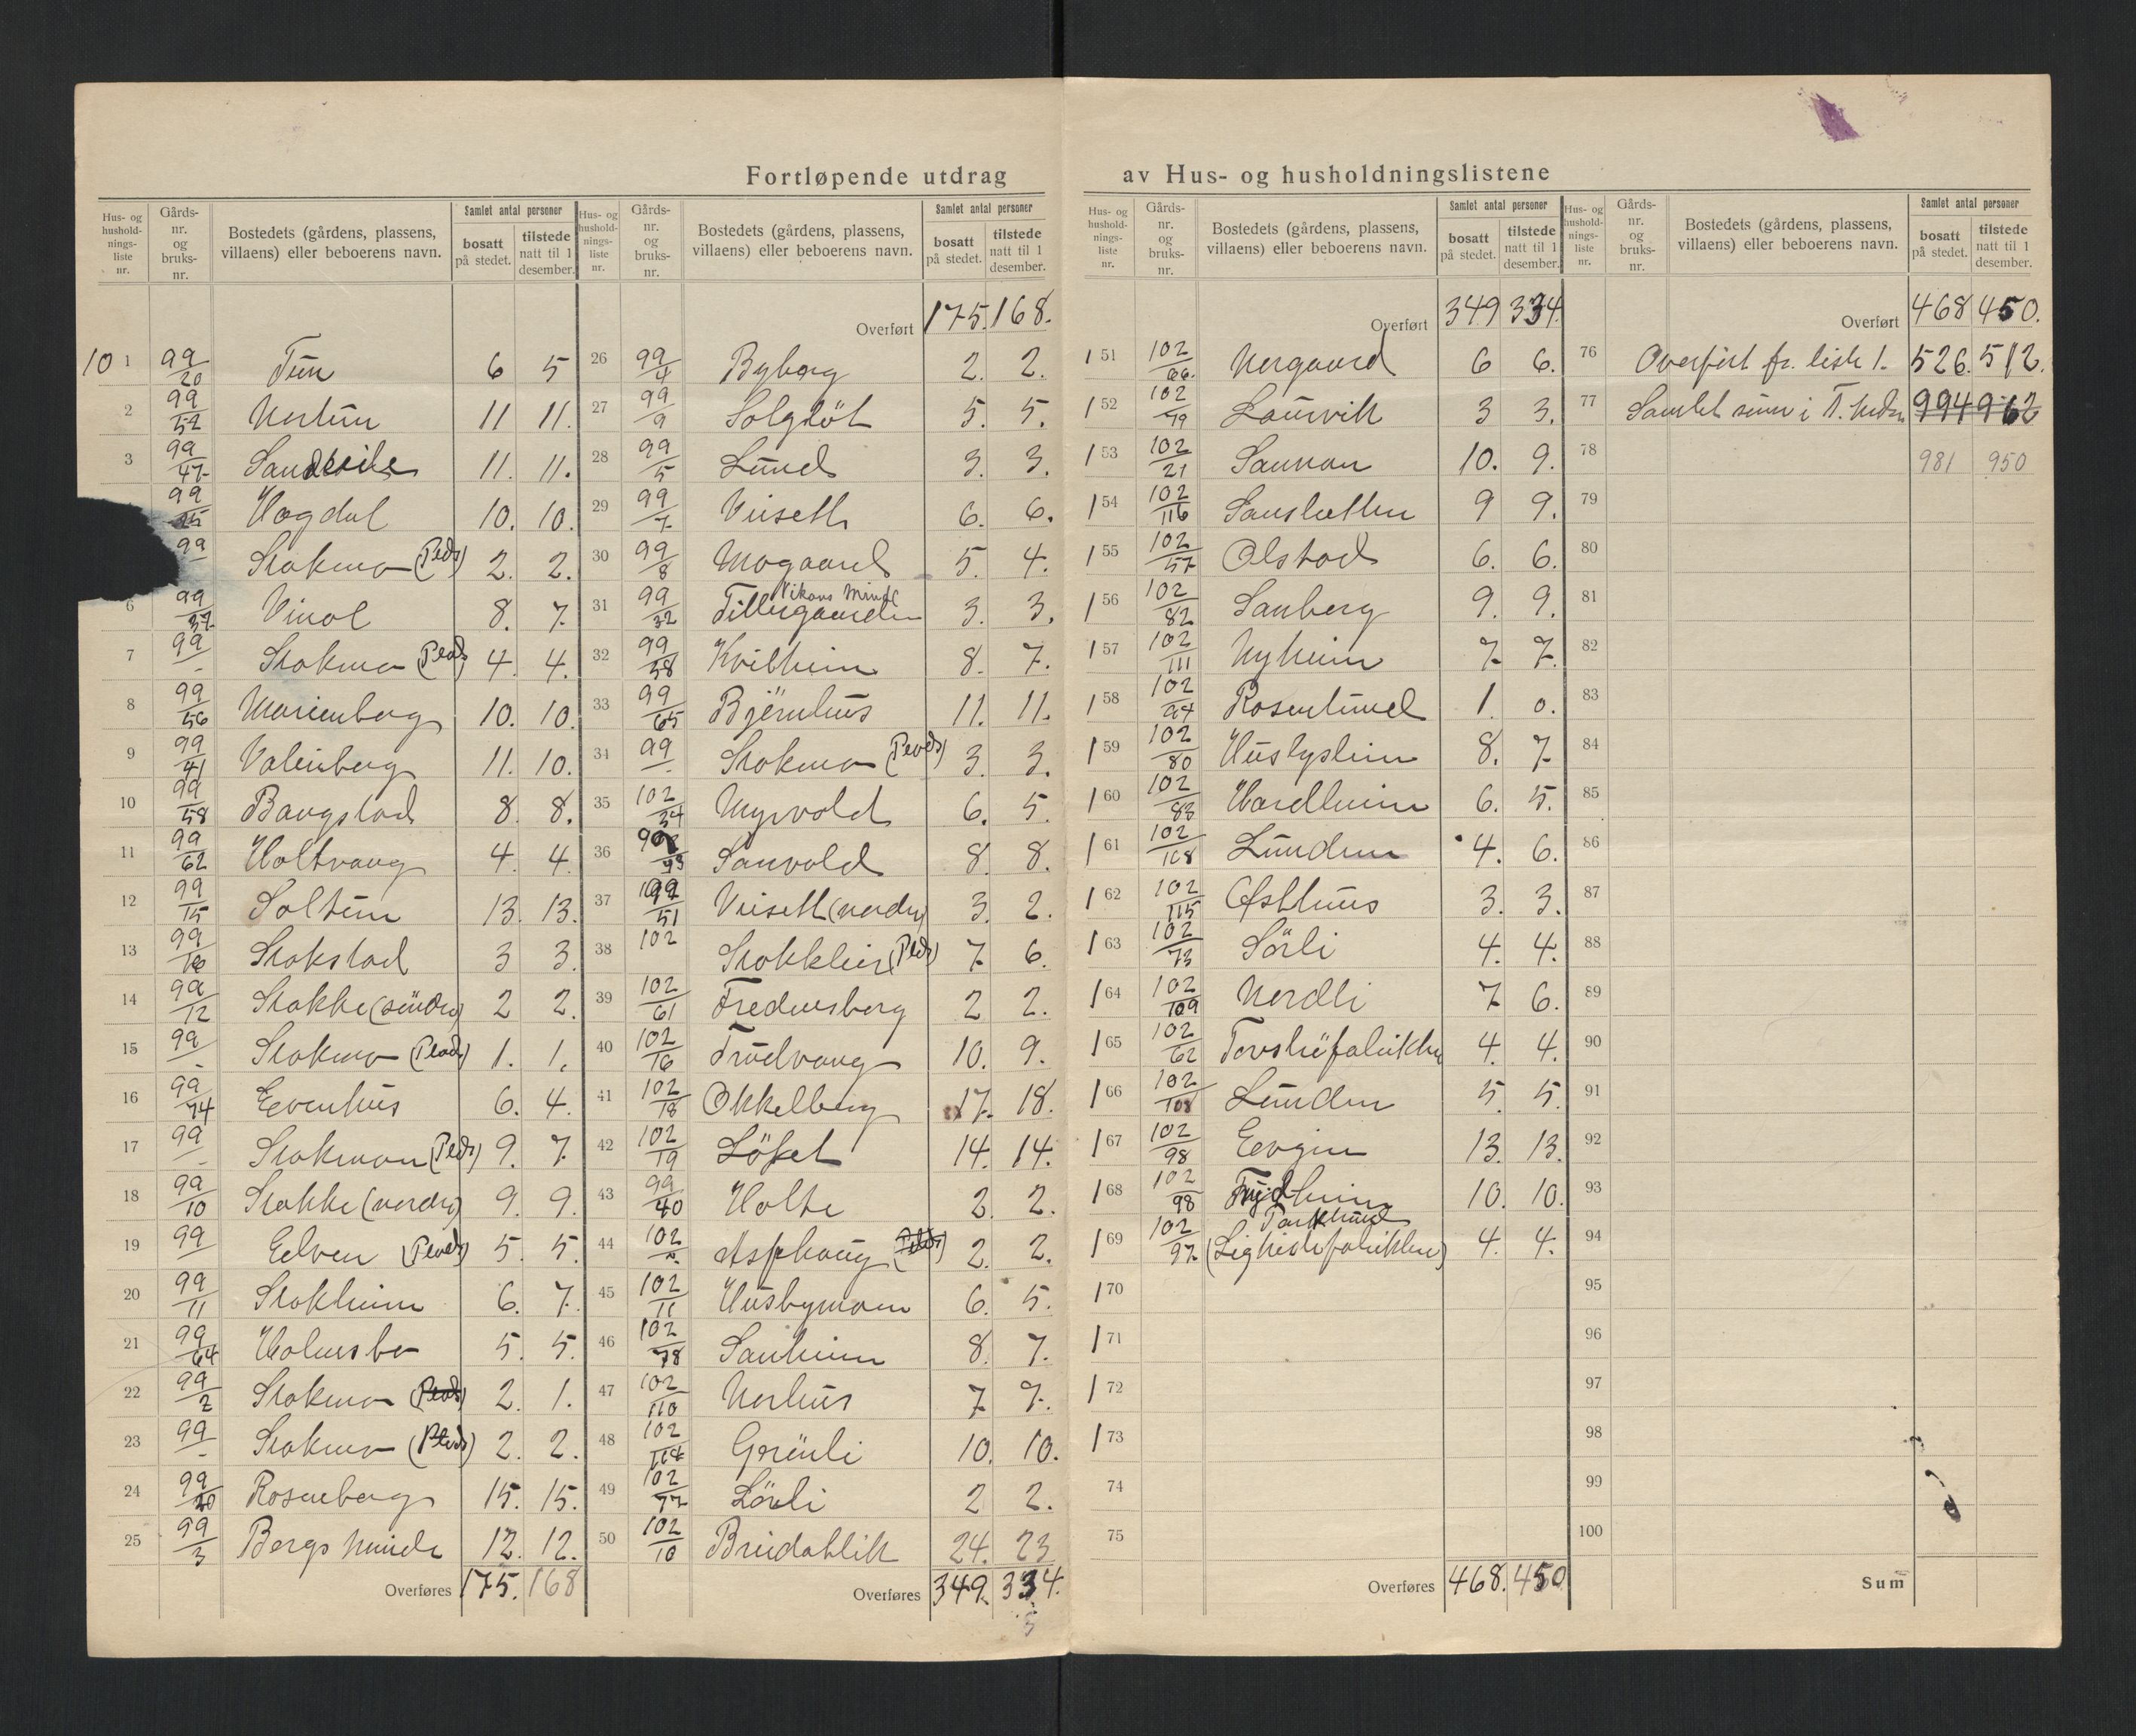 Fortløpende utdrag av Hus- og husholdningslistene
Hus- og hushold-nings-liste nr. Gårds-nr. og bruks-nr. Bostedets (gårdens, plassens, villaens) eller beboerens navn. Samlet antal personer bosatt på stedet. tilstede natt til 1 desember.
10 1 99/20 Tun 6 5
2 99/52 Nertun 11 11.
3 99/47 11. 11.
99/ Hagdal 10. 10.
99/ Stokmo (Plads) 2. 2.
6 99/ Vinal 8. 7
7 99/- Stokmo (Plads) 4. 4.
8 99/56 Marienborg 10. 10.
9 99/41 11. 10.
10 99/58 Baugstad 8 8.
11 99/62 Holtvang 4. 4.
12 99/15 Soltun 13. 13.
13 99/16 Stokstad 3 3.
14 99/12 Stokke (söndre) 2 2.
15 99/- Stokmo (Plads) 1. 1.
16 99/74 Evenhus 6. 4.
17 99/- Stokmoen (Plads) 9. 7.
18 99/10 Stokke (nordre) 9. 9.
19 99/ Elven (Plads) 5. 5.
20 99/11 Stokheim 6. 7.
21 99/64 5. 5.
22 99/2 Stokmo (Plads) 2. 1.
23 99/- Stokmo (Plads) 2. 2.
24 99/ Rosenberg 15. 15.
25 99/3 Bergs Minde 12. 12.
Overføres 175. 168
Hus- og hushold-nings-liste nr. Gårds-nr. og bruks-nr. Bostedets (gårdens, plassens, villaens) eller beboerens navn. Samlet antal personer bosatt på stedet. tilstede natt til 1 desember.
Overført 175. 168.
26 99/4 Byborg 2. 2.
27 99/9 Solgløt 5. 5.
28 99/5 Lund 3. 3.
29 99/7 Viiseth 6. 6.
30 99/8 Mogaard 5. 4.
Vikans Minde
31 99/32 Tillergaarden 3. 3.
32 99/38 Kvilheim 8. 7.
33 99/65 Bjørnhus 11. 11.
34 99/- Stokmo (Plads) 3. 3.
35 102/34 Myrvold 6. 5.
36 Sanvold 8. 8.
37 99/51 Viiseth (nordre) 3. 2.
38 102 (Plds) 7 6.
39 102/61 Fredensborg 2 2.
40 102/16 Trudvang 10. 9.
41 102/18 Okkelberg 17. 18.
42 102/19 Löset 14. 14.
43 99/40 Holte 2. 2.
44 102/ Asphaug (Plds) 2. 2.
45 102/11 Husbymoen 6. 5.
46 102/78 Sanheim 8. 7.
47 102/110 Nerhus 7 7.
48 102/114 Grönli 10. 10.
49 102/77 2 2.
50 102/10 Breidablik 24. 23
Overføres 349. 334.
5
Hus- og hushold-nings-liste nr. Gårds-nr. og bruks-nr. Bostedets (gårdens, plassens, villaens) eller beboerens navn. Samlet antal personer bosatt på stedet. tilstede natt til 1 desember.
Overført 349 334.
1 51 102/66. Nergaard 6 6.
1 52 102/79 Laurvik 3 3.
1 53 102/21 Sanmoen 10. 9.
1 54 102/116 Sansletten 9 9.
1 55 102/57 Olstad 6. 6.
1 56 102/82 Sanberg 9. 9.
1 57 102/111 Nyheim 7 7.
1 58 102/94 Rosenlund 1. 0.
1 59 102/80 8. 7
1 60 102/83 6. 5.
1 61 102/108 Lunden 4. 6.
1 62 102/115 Østhus 3. 3.
1 63 102/73 Sörli 4. 4.
1 64 102/109 Nordli 7 6.
1 65 102/62 Torvströfabrikken 4. 4.
1 66 102/108 Lunden 5. 5.
1 67 102/98 13. 13.
1 68 102/98 10. 10.
1 69 102/97 4. 4.
1 70
1 71
1 72
1 73
74
75
Overføres 468. 450
Hus- og hushold-nings-liste nr. Gårds-nr. og bruks-nr. Bostedets (gårdens, plassens, villaens) eller beboerens navn. Samlet antal personer bosatt på stedet. tilstede natt til 1 desember.
Overført 468 450.
76 Overført fr. liste 1. 526. 512.
77 Samlet sum i 994 962
78 981 950
79
80
81
82
83
84
85
86
87
88
89
90
91
92
93
94
95
96
97
98
99
100
Sum